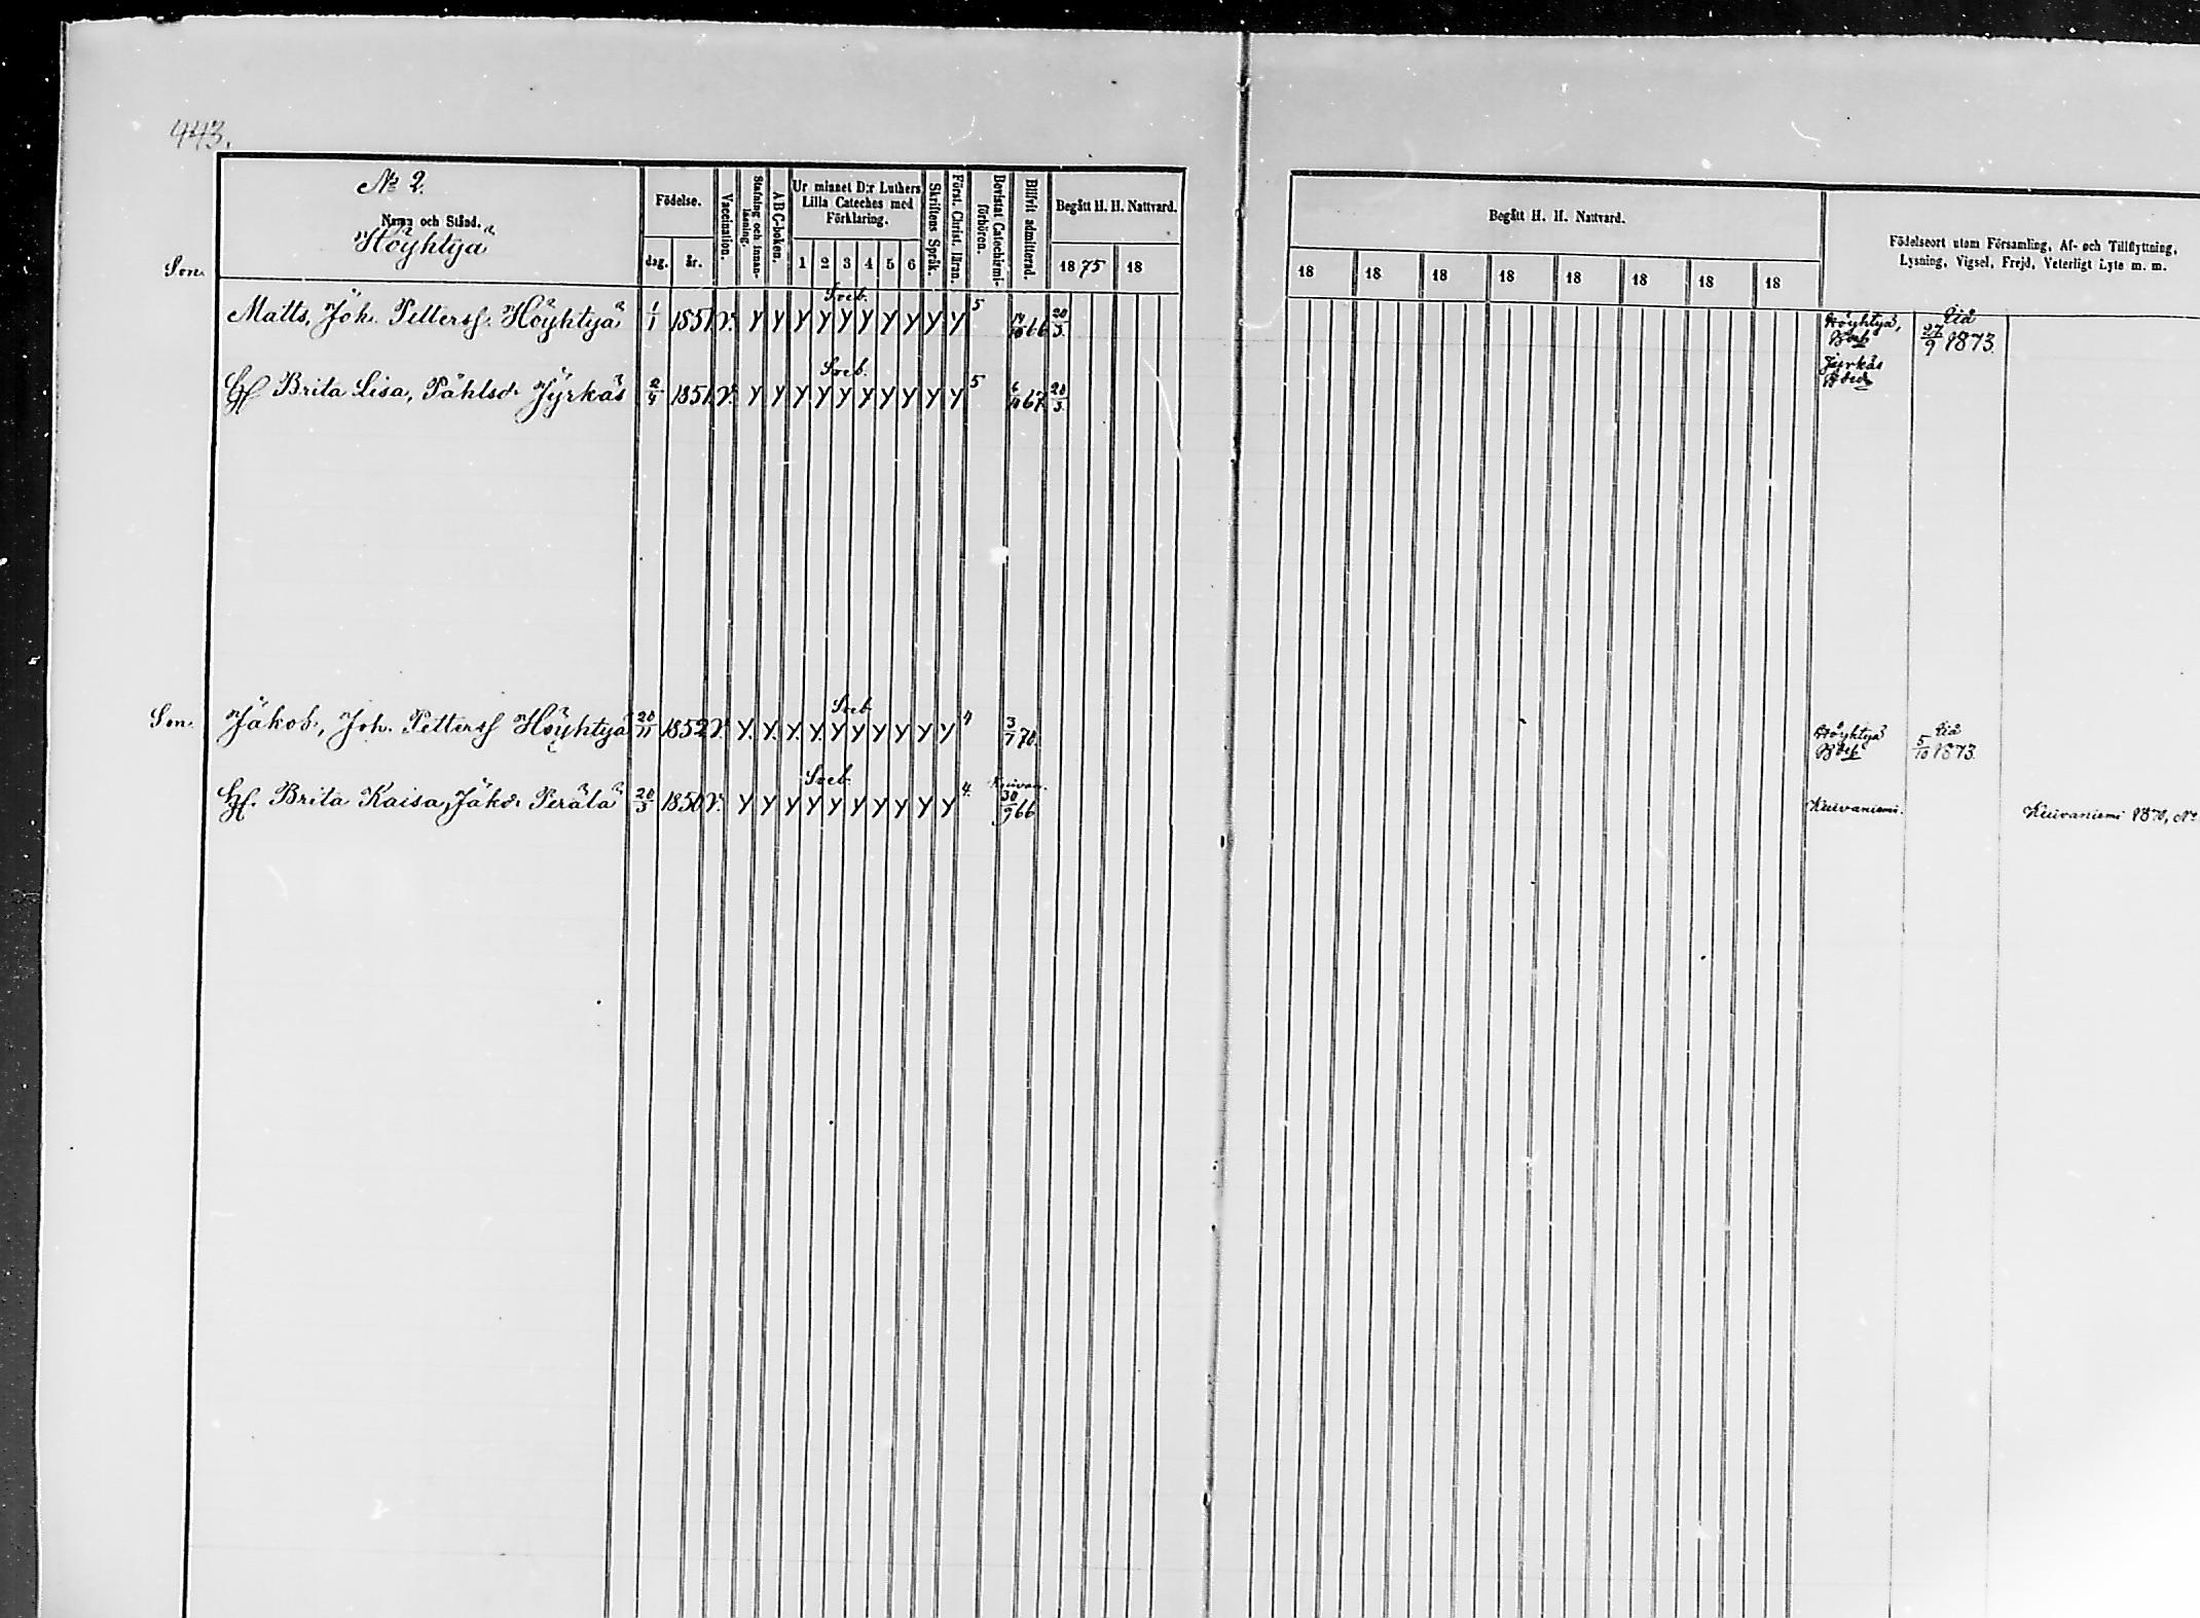 443.
№ 2.
Namn och Stånd.
Höyhtyä
Födelse.
dag. år.
Vaccination.
Stafning och innan-läsning.
ABC-boken.
Ur minnet D:r Luthers
Lilla Cateches med
Förklaring.
1 2 3 4 5 6
Skriftens Språk.
Först. Christ. läran.
Bevistat Catechismi-förhören.
Blifvit admitterad.
Begått H. H. Nattvard.
1875 18
Begått H. H. Nattvard.
18 18 18 18 18 18 18 18
Födelseort utom Församling, Af- och Tillflyttning,
Lysning, Vigsel, Frejd, Veterligt Lyte m. m.
Son.
Matts, Joh. Petterss. Höyhtyä 1/1 1851 v. Y Y Y Y Y Y Y Y Y Y 5 66 20/3. Höyhtyä, 27/9 1873.
Hu Brita Lisa, Påhlsd. Jyrkäs 1851 v. Y Y Y Y Y Y Y Y Y Y 5 67 20/3. Jyrkäs
Son. Jakob, Joh. Petterss Höyhtyä 20/11 1852 v. Y. Y. Y. Y. Y Y Y Y Y Y 4 3/7 70. Höyhtyä 5/10 1873.
Hu. Brita Kaisa, Jakd. Perälä 20/3 1850 v. Y Y Y Y Y Y Y Y Y Y 4. 30/9 66 Kuivaniemi. Kuivaniemi 1870, №